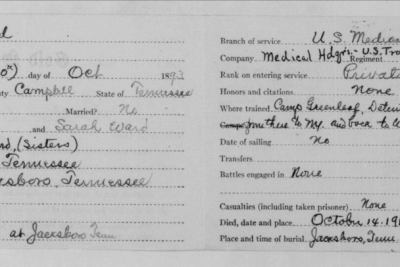 d
0") day of Oct 1893
ty Campbell State of Tennessee
Married? No
and Sarah Ward
rd, (Sisters)
Tennessee
ksboro, Tennessee
at Jacksboro Tenn
Branch of service U.S. Medica
Company Medical Hdqrs - U.S. Tra
Regiment
Rank on entering service Private
Honors and citations None
Where trained Camp Greenleaf,
from there to N.Y. and back to
Date of sailing No
Transfers
Battles engaged in None
Casualties (including taken prisoner) None
Died, date and place October 14-191
Place and time of burial Jacksboro, Tenn